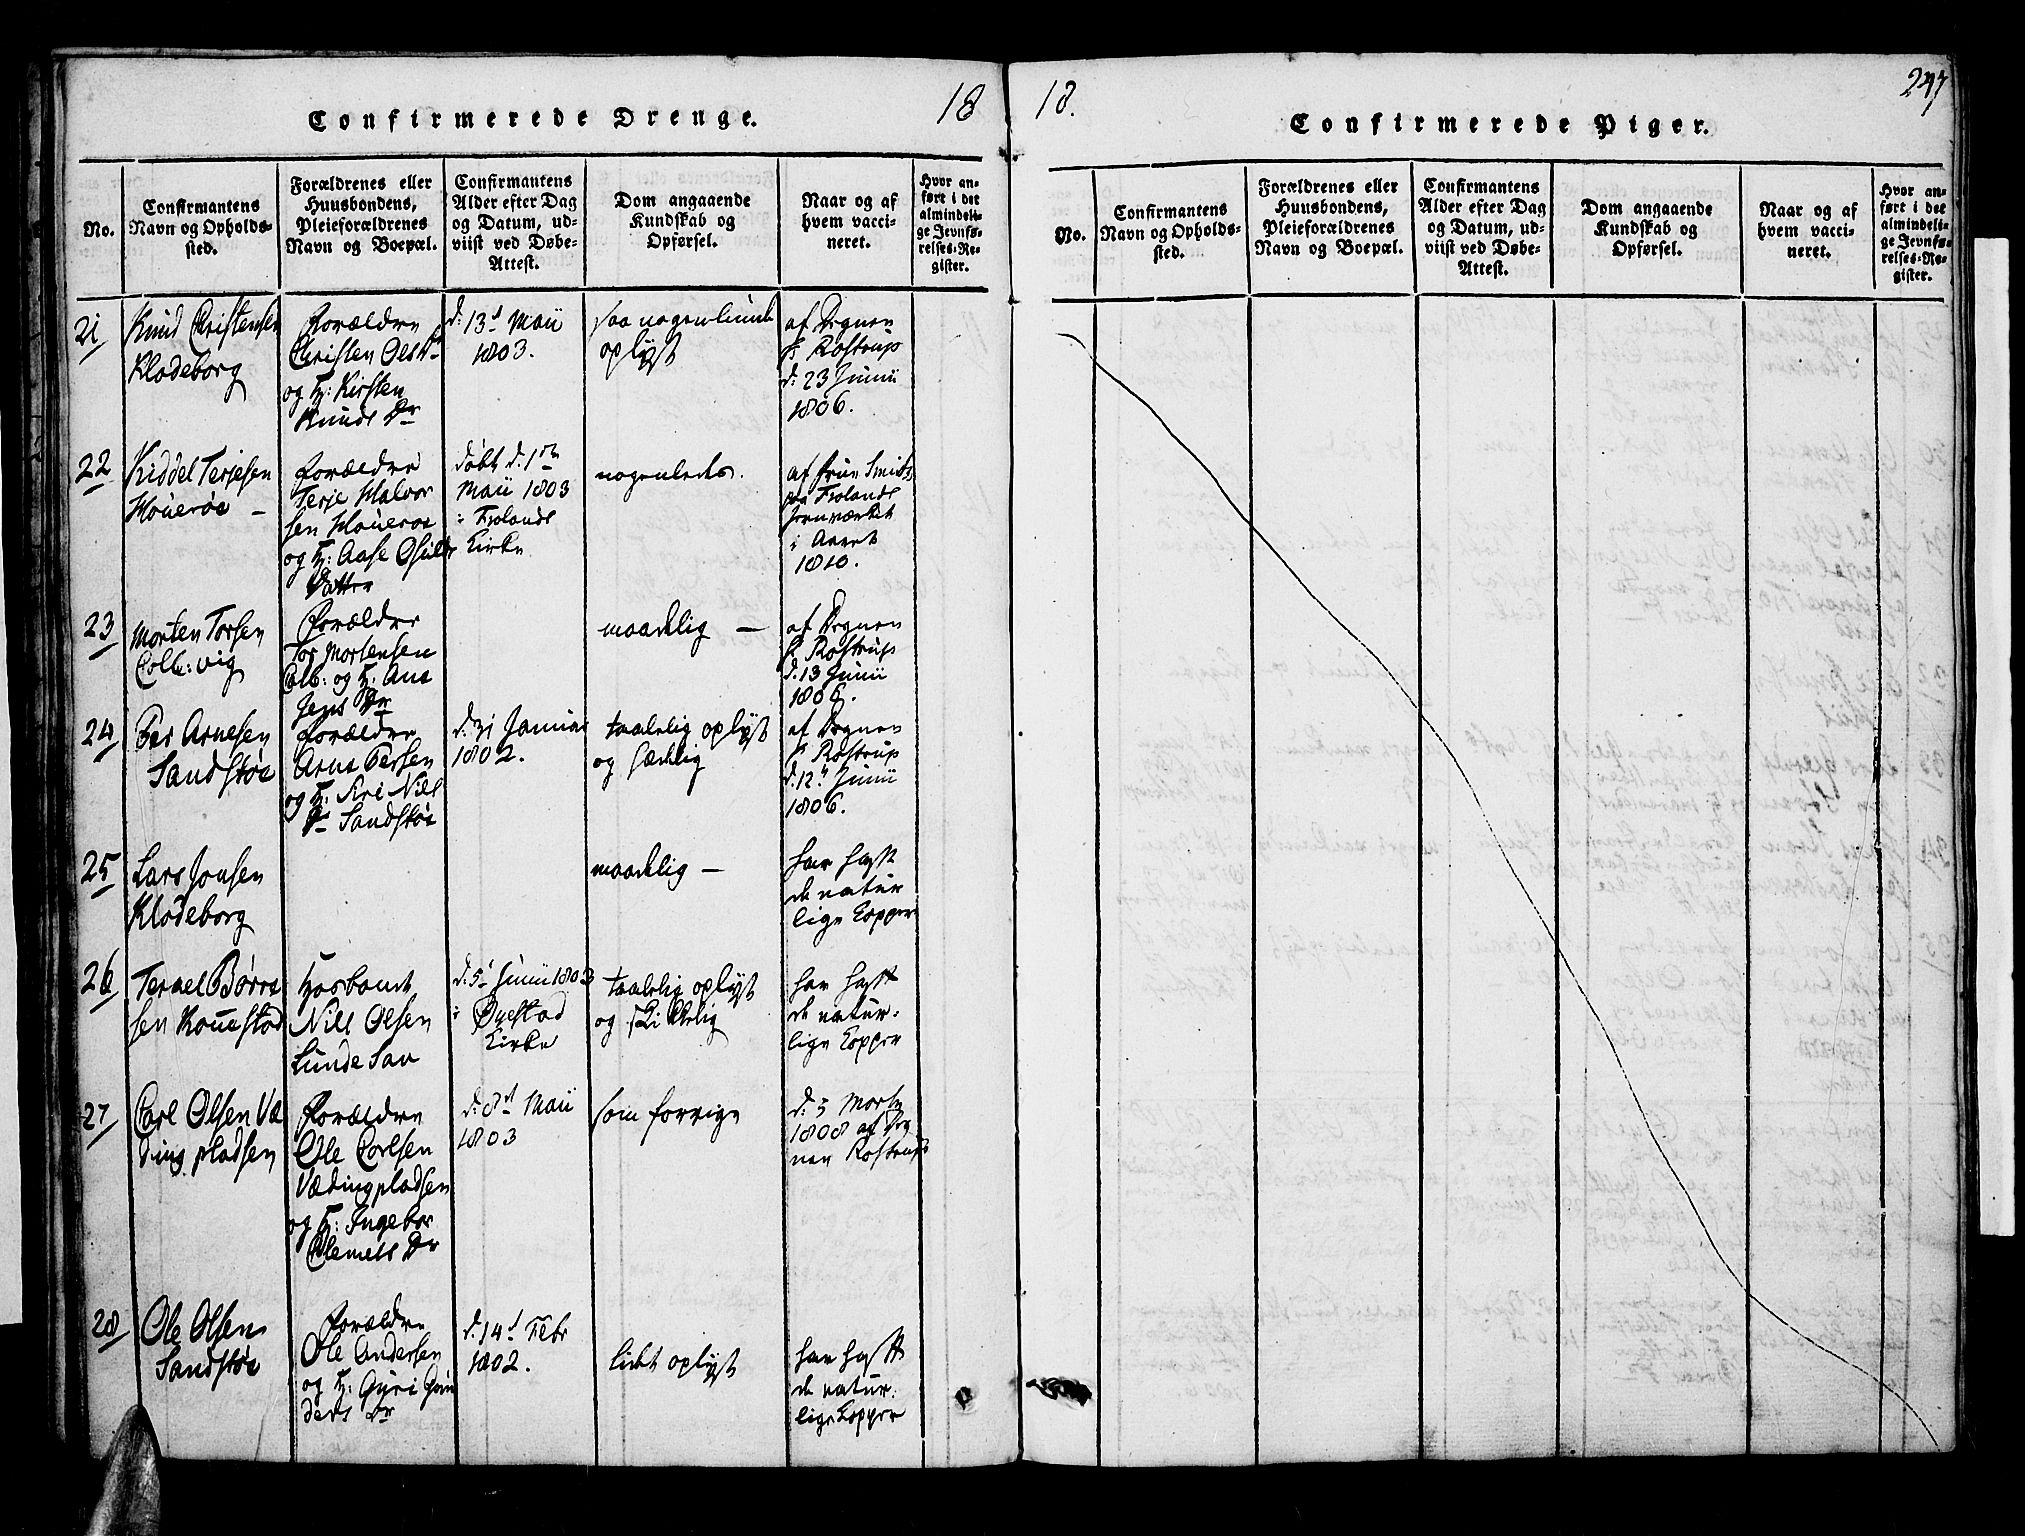 18
Confirmerede Drenge.
No.
Confirmantens
Navn og Opholds-
sted.
Forældrenes eller
Huusbondens,
Pleieforældrenes
Navn og Boepæl.
Confirmantens
Alder efter Dag
og Datum, ud-
viist ved Døbe-
Attest.
Dom angaaende
Kundskab og
Opførsel.
Naar og af
hvem vacci-
neret.
Hvor an-
ført i det
almindeli-
ge Jevnfø-
relses-Re-
gister.
21
Knud Christensen
Klodeborg
Forældre
Christen Ols
og H: Kirsten
Knuds Dr
d: 13d Maii
1803.
saa nogenlunde
oplyst
af Degnen
Hr Rostrup
d: 23 Junii
1806.
22
Kiddel Terjesen
Houerøe –
Forældre
Terje Halvor
sen Houeroe
og H: Aase Osuls
Datter
døbt d. 1ste
Maii 1803
i Frolands
Kirke
nogenledes.
af Frue Smith
paa Frolands
Jernværket
i Aaret
1810.
23
Morten Torsen
Colb:vig
Forældre
Tor Mortensen
Colb: og H: Ane
Jens Dr
maadelig –
af Degnen
Hr Rostrup
d. 13 Junii
1806.
24
Per Arnesen
Sandstøe
Forældre
Arne Persen
og H. Siri Nils
Dr Sandstøe
d. 31 Januar
1802.
taalelig oplyst
og sædelig
af Degnen
Hr Rostrup
d. 12te Junii
1806.
25
Lars Jonsen
Klodeborg
maadelig –
har haft
de natur
lige Kopper
26
Terael Børre
sen Kouestad
Hosbonde
Nils Olsen
Lunde Sau
d: 5d Junii 1803
i Øyestad
Kirke
taalelig oplyst
og skikkelig
har haft
de natur-
lige Kopper
27
Carl Olsen Væ
dingpladsen
Forældre
Ole Carlsen
Vædingpladsen
og H: Ingebor
Clemets Dr
d: 8d Maii
1803
som forrige
d: 3 Morts
1808 af Deg
nen Rostrup
28
Ole Olsen
Sandstøe
Forældre
Ole Andersen
og H: Guri Gun
ders Dr
d: 14d Febr
1802.
lidt oplyst
har haft
de natur.
lige Kopper
18.
247
Confirmerede Piger.
No.
Confirmantens
Navn og Opholds-
sted.
Forældrenes eller
Huusbondens,
Pleieforældrenes
Navn og Boepæl.
Confirmantens
Alder efter Dag
og Datum, ud-
viist ved Døbe-
Attest.
Dom angaaende
Kundskab og
Opførsel.
Naar og af
hvem vacci-
neret.
Hvor an-
ført i det
almindeli-
ge Jevnfø-
relses-Re-
gister.